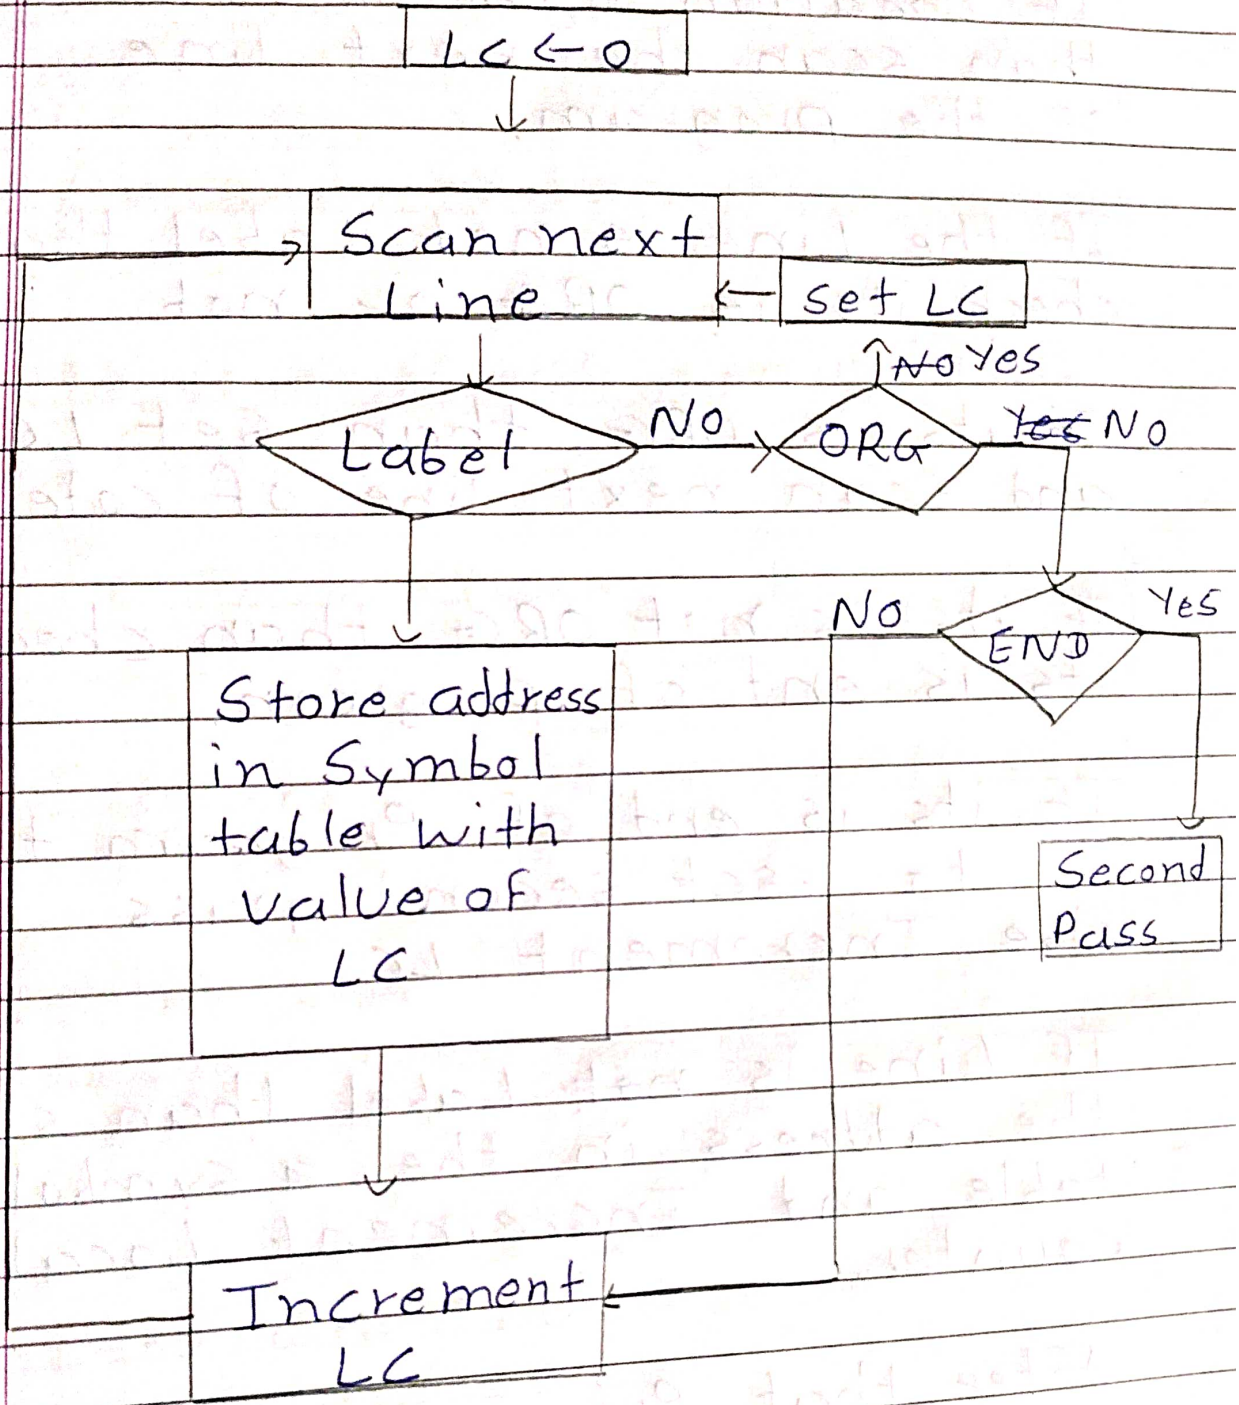 LC ← 0
Scan next
Line
set LC
No Yes
Label
NO
ORG
Yes NO
NO
END
Yes
Store address
in Symbol
table with
value of
LC
Second
Pass
Increment
LC